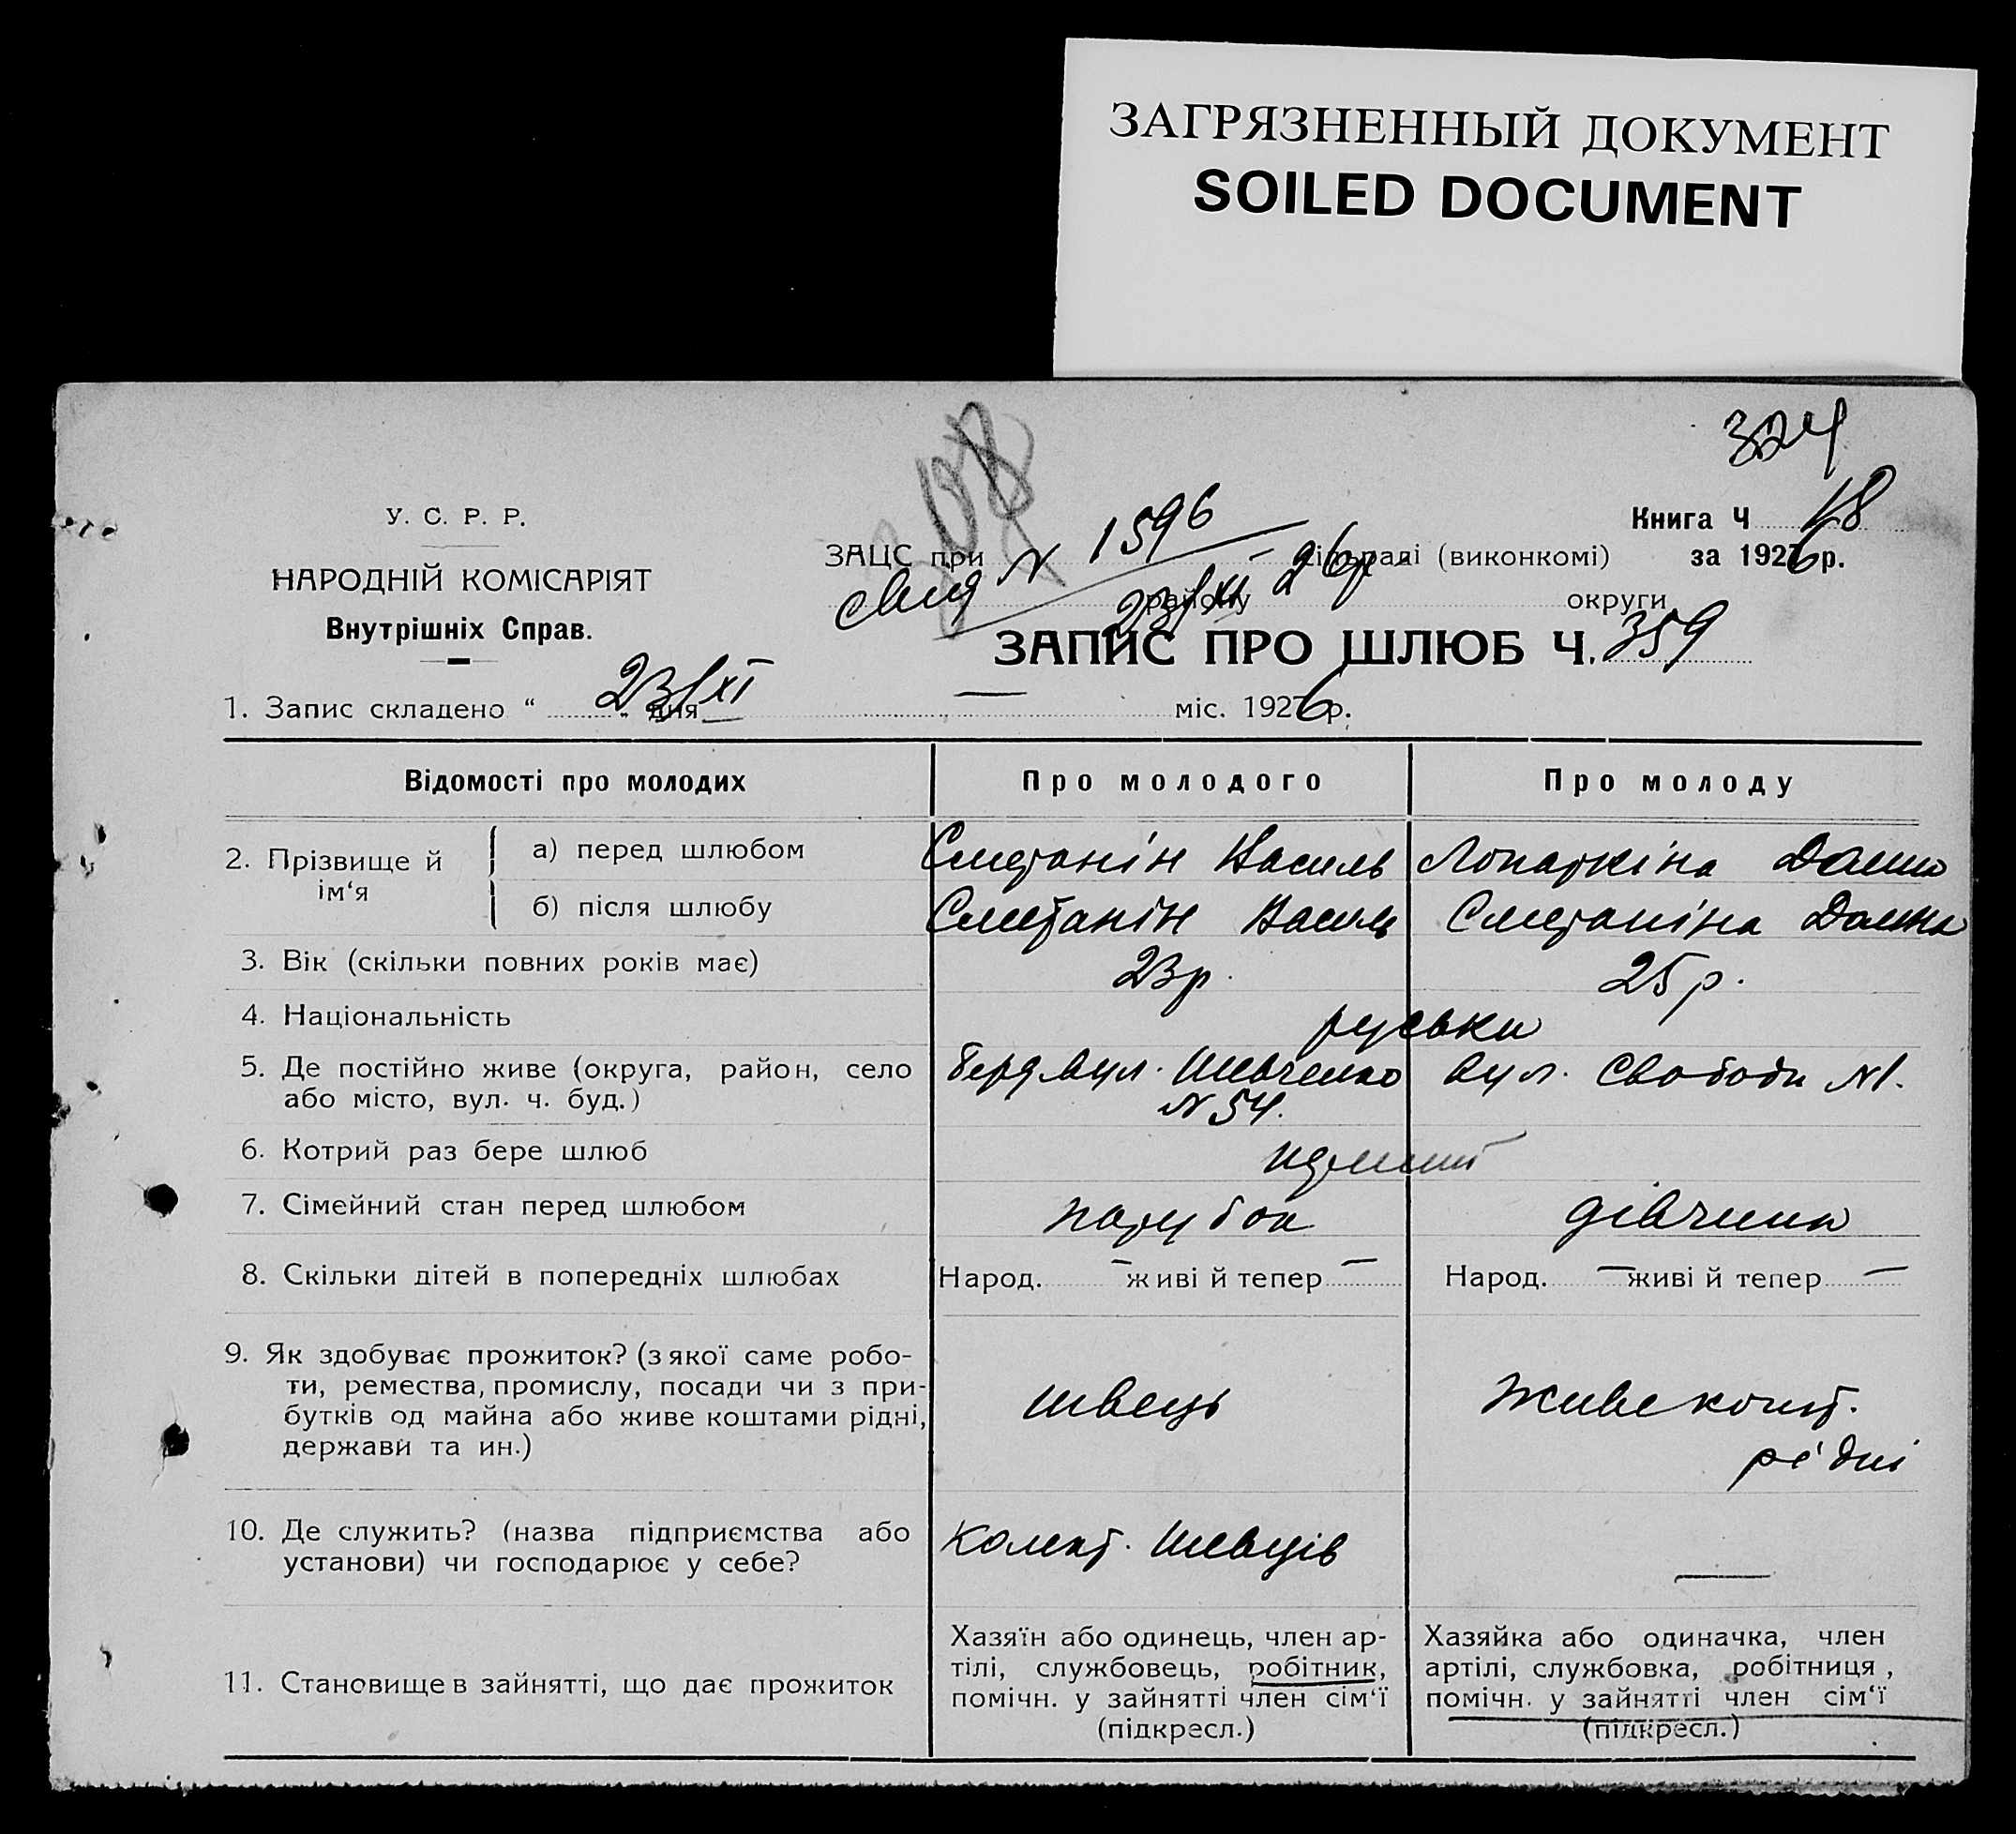 ЗАГРЯЗНЕННЫЙ ДОКУМЕНТ
SOILED DOCUMENT
324
308
У. С. Р. Р.
НАРОДНІЙ КОМІСАРІЯТ
Внутрішніх Справ.
Книга Ч 18
за 1926 р.
ЗАЦС при N 1596 (виконкомі)
району 23/XI - 26р. округи
ЗАПИС ПРО ШЛЮБ Ч. 359
1. Запис складено “ 23/XI дня міс. 1926 р.
Відомості про молодих Про молодого Про молоду
2. Прізвище й ім‘я
а) перед шлюбом Сметанін Василь Лопаткіна Домна
б) після шлюбу Сметанін Василь Сметаніна Домна
3. Вік (скільки повних років має) 23р. 25р.
4. Національність руськи
5. Де постійно живе (округа, район, село Берд. вул. Шевченко вул. Свободи N1.
або місто, вул. ч. буд.) N 54.
6. Котрий раз бере шлюб
7. Сімейний стан перед шлюбом парубок дівчина
8. Скільки дітей в попередніх шлюбах Народ. — живі й тепер — Народ. — живі й тепер —
9. Як здобуває прожиток? (з якої саме робо-
ти, ремества, промислу, посади чи з при-
бутків од майна або живе коштами рідні, швець Живе кошт.
держави та ин.) рідні
10. Де служить? (назва підприємства або Колект. Шевців
установи) чи господарює у себе? —
11. Становище в зайнятті, що дає прожиток
Хазяїн або одинець, член ар-
тілі, службовець, робітник,
помічн. у зайнятті член сім‘ї
(підкресл.)
Хазяйка або одиначка, член
артілі, службовка, робітниця,
помічн. у зайнятті член сім‘ї
(підкресл.)